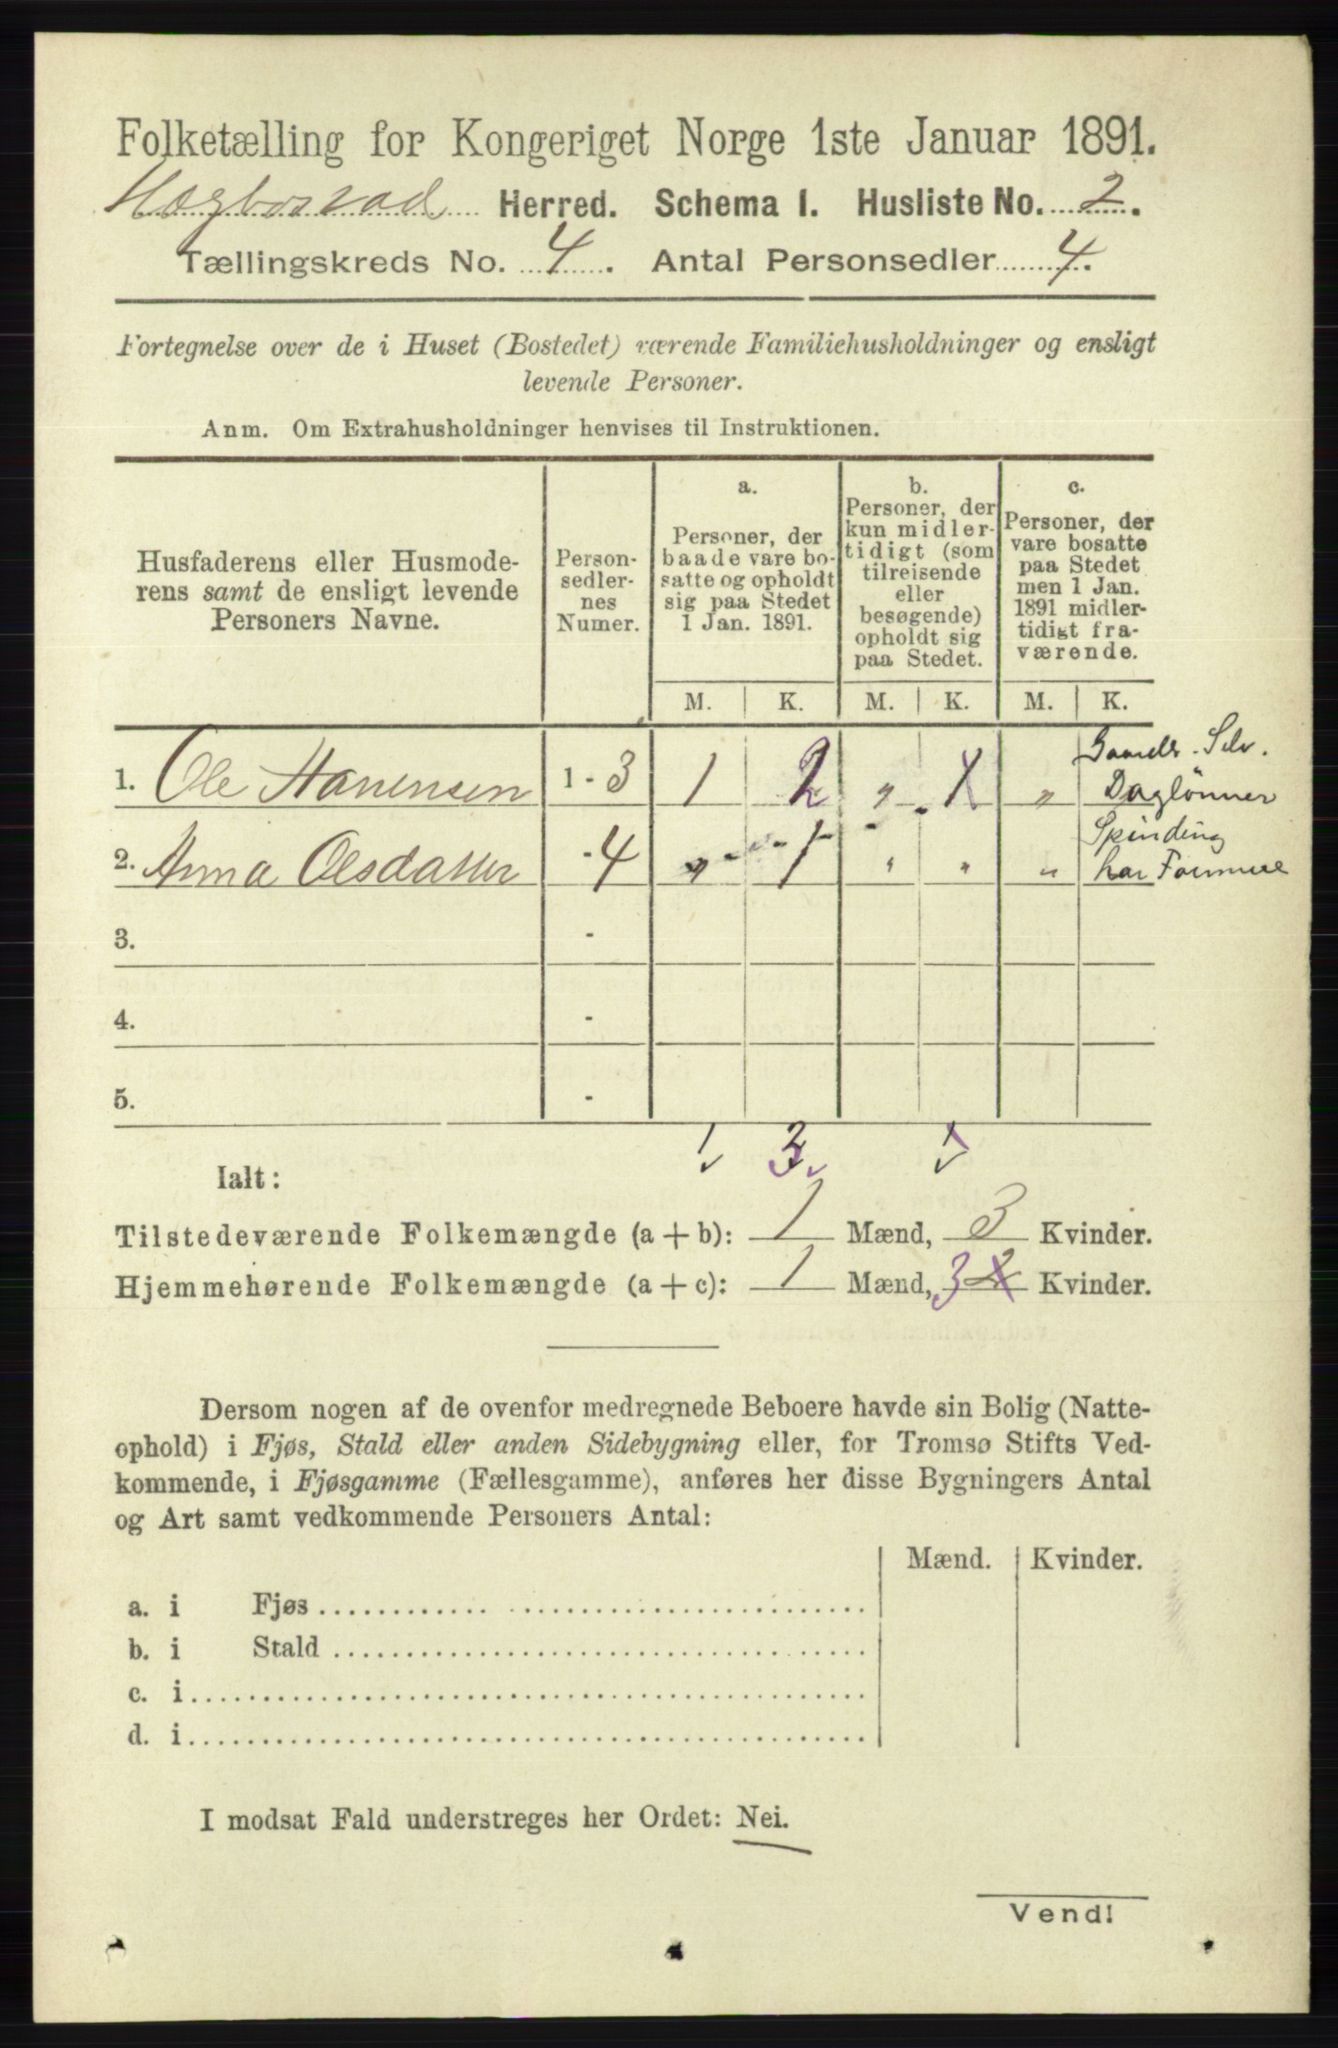 Folketælling for Kongeriget Norge 1ste Januar 1891.
Hægbostad Herred. Schema I. Husliste No. 2.
Tællingskreds No. 4. Antal Personsedler 4.
Fortegnelse over de i Huset (Bostedet) værende Familiehusholdninger og ensligt
levende Personer.
Anm. Om Extrahusholdninger henvises til Instruktionen.
Husfaderens eller Husmode-
rens samt de ensligt levende
Personers Navne.
Person-
sedler-
nes
Numer.
a.
Personer, der
baade vare bo-
satte og opholdt
sig paa Stedet
1 Jan. 1891.
b.
Personer, der
kun midler-
tidigt (som
tilreisende
eller
besøgende)
opholdt sig
paa Stedet.
c.
Personer, der
vare bosatte
paa Stedet
men 1 Jan.
1891 midler-
tidigt fra-
værende.
M. K. M. K. M. K.
Selv.
1. Ole Hanensen 1 - 3 1 2 " 1 " Daglönner
Spinding
2. Anna Olsdatter - 4 " 1 " " " har Formue
3. -
4. -
5. -
1 3 1
Ialt:
Tilstedeværende Folkemængde (a + b): 1 Mænd, 3 Kvinder.
Hjemmehørende Folkemængde (a + c): 1 Mænd, 3 2 Kvinder.
Dersom nogen af de ovenfor medregnede Beboere havde sin Bolig (Natte-
ophold) i Fjøs, Stald eller anden Sidebygning eller, for Tromsø Stifts Ved-
kommende, i Fjøsgamme (Fællesgamme), anføres her disse Bygningers Antal
og Art samt vedkommende Personers Antal:
Mænd. Kvinder.
a. i Fjøs
b. i Stald
c. i
d. i
I modsat Fald understreges her Ordet: Nei.
Vend!